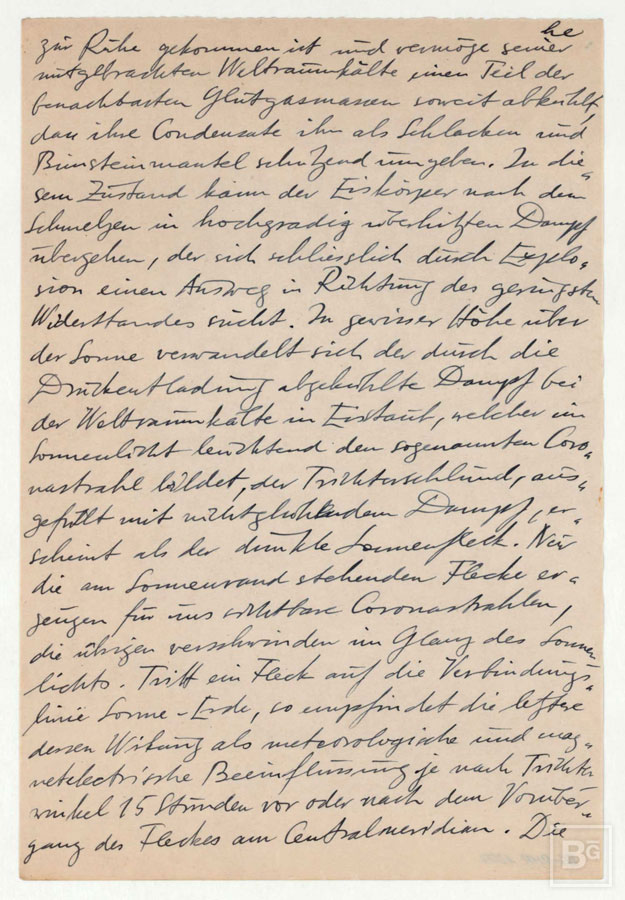 he
zur Ruhe gekommen ist und vermöge seiner
mitgebrachten Weltraumkälte einen Teil der
benachbarten Glutgasmassen soweit abkühlt,
dass ihre Condensate ihn als Schlacken und
Bimsteinmantel schützend umgeben. In die-
sem Zustand kann der Eiskörper nach dem
Schmelzen in hochgradig überhitzten Dampf
übergehen, der sich schliesslich durch Explo-
sion einen Ausweg in Richtung des geringsten
Widerstandes sucht. In gewisser Höhe über
der Sonne verwandelt sich der durch die
Druckentladung abgekühlte Dampf bei
der Weltraumkälte in Eisstaub, welcher im
Sonnenlicht leuchtend den sogenannten Coro-
nastrahl bildet, der Trichterschlund, aus-
gefüllt mit nichtglühendem Dampf, er-
scheint als der dunkle Sonnenfleck. Nur
die am Sonnenrand stehenden Flecke er-
zeugen für uns sichtbare Coronastrahlen,
die übrigen verschwinden im Glanz des Sonnen-
lichts. Tritt ein Fleck auf die Verbindungs-
linie Sonne-Erde, so empfindet die letztere
dessen Wirkung als meteorologische und mag-
netelectrische Beeinflussung je nach Trichter-
winkel 15 Stunden vor oder nach dem Vorüber-
gang des Fleckes am Centralmeridian. Die
BG